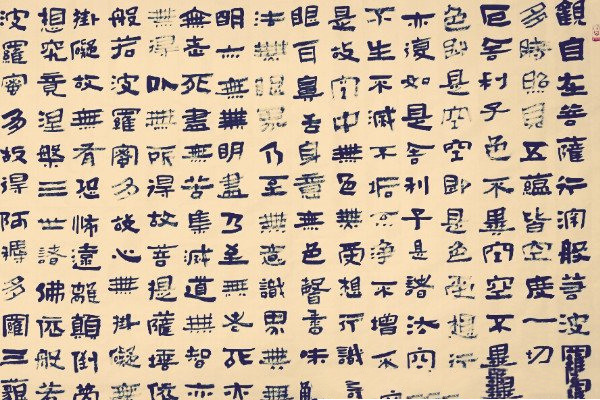 觀自在菩薩行深般若波羅
多時照見五蘊皆空度一切
厄舍利子色不異空空不異
色即是空空即是色受想行
亦復如是舍利子是諸法空
不生不滅不垢不淨不增不
是故空中無色無受想行識
眼耳鼻舌身意無色聲香味
法無眼界乃至無意識界無
明亦無無明盡乃至無老死亦
無老死盡無苦集滅道無智亦
無得以無所得故菩提薩埵依
般若波羅蜜多故心無掛礙無
掛礙故無有恐怖遠離顛倒夢
想究竟涅槃三世諸佛依般若
波羅蜜多故得阿耨多羅三藐